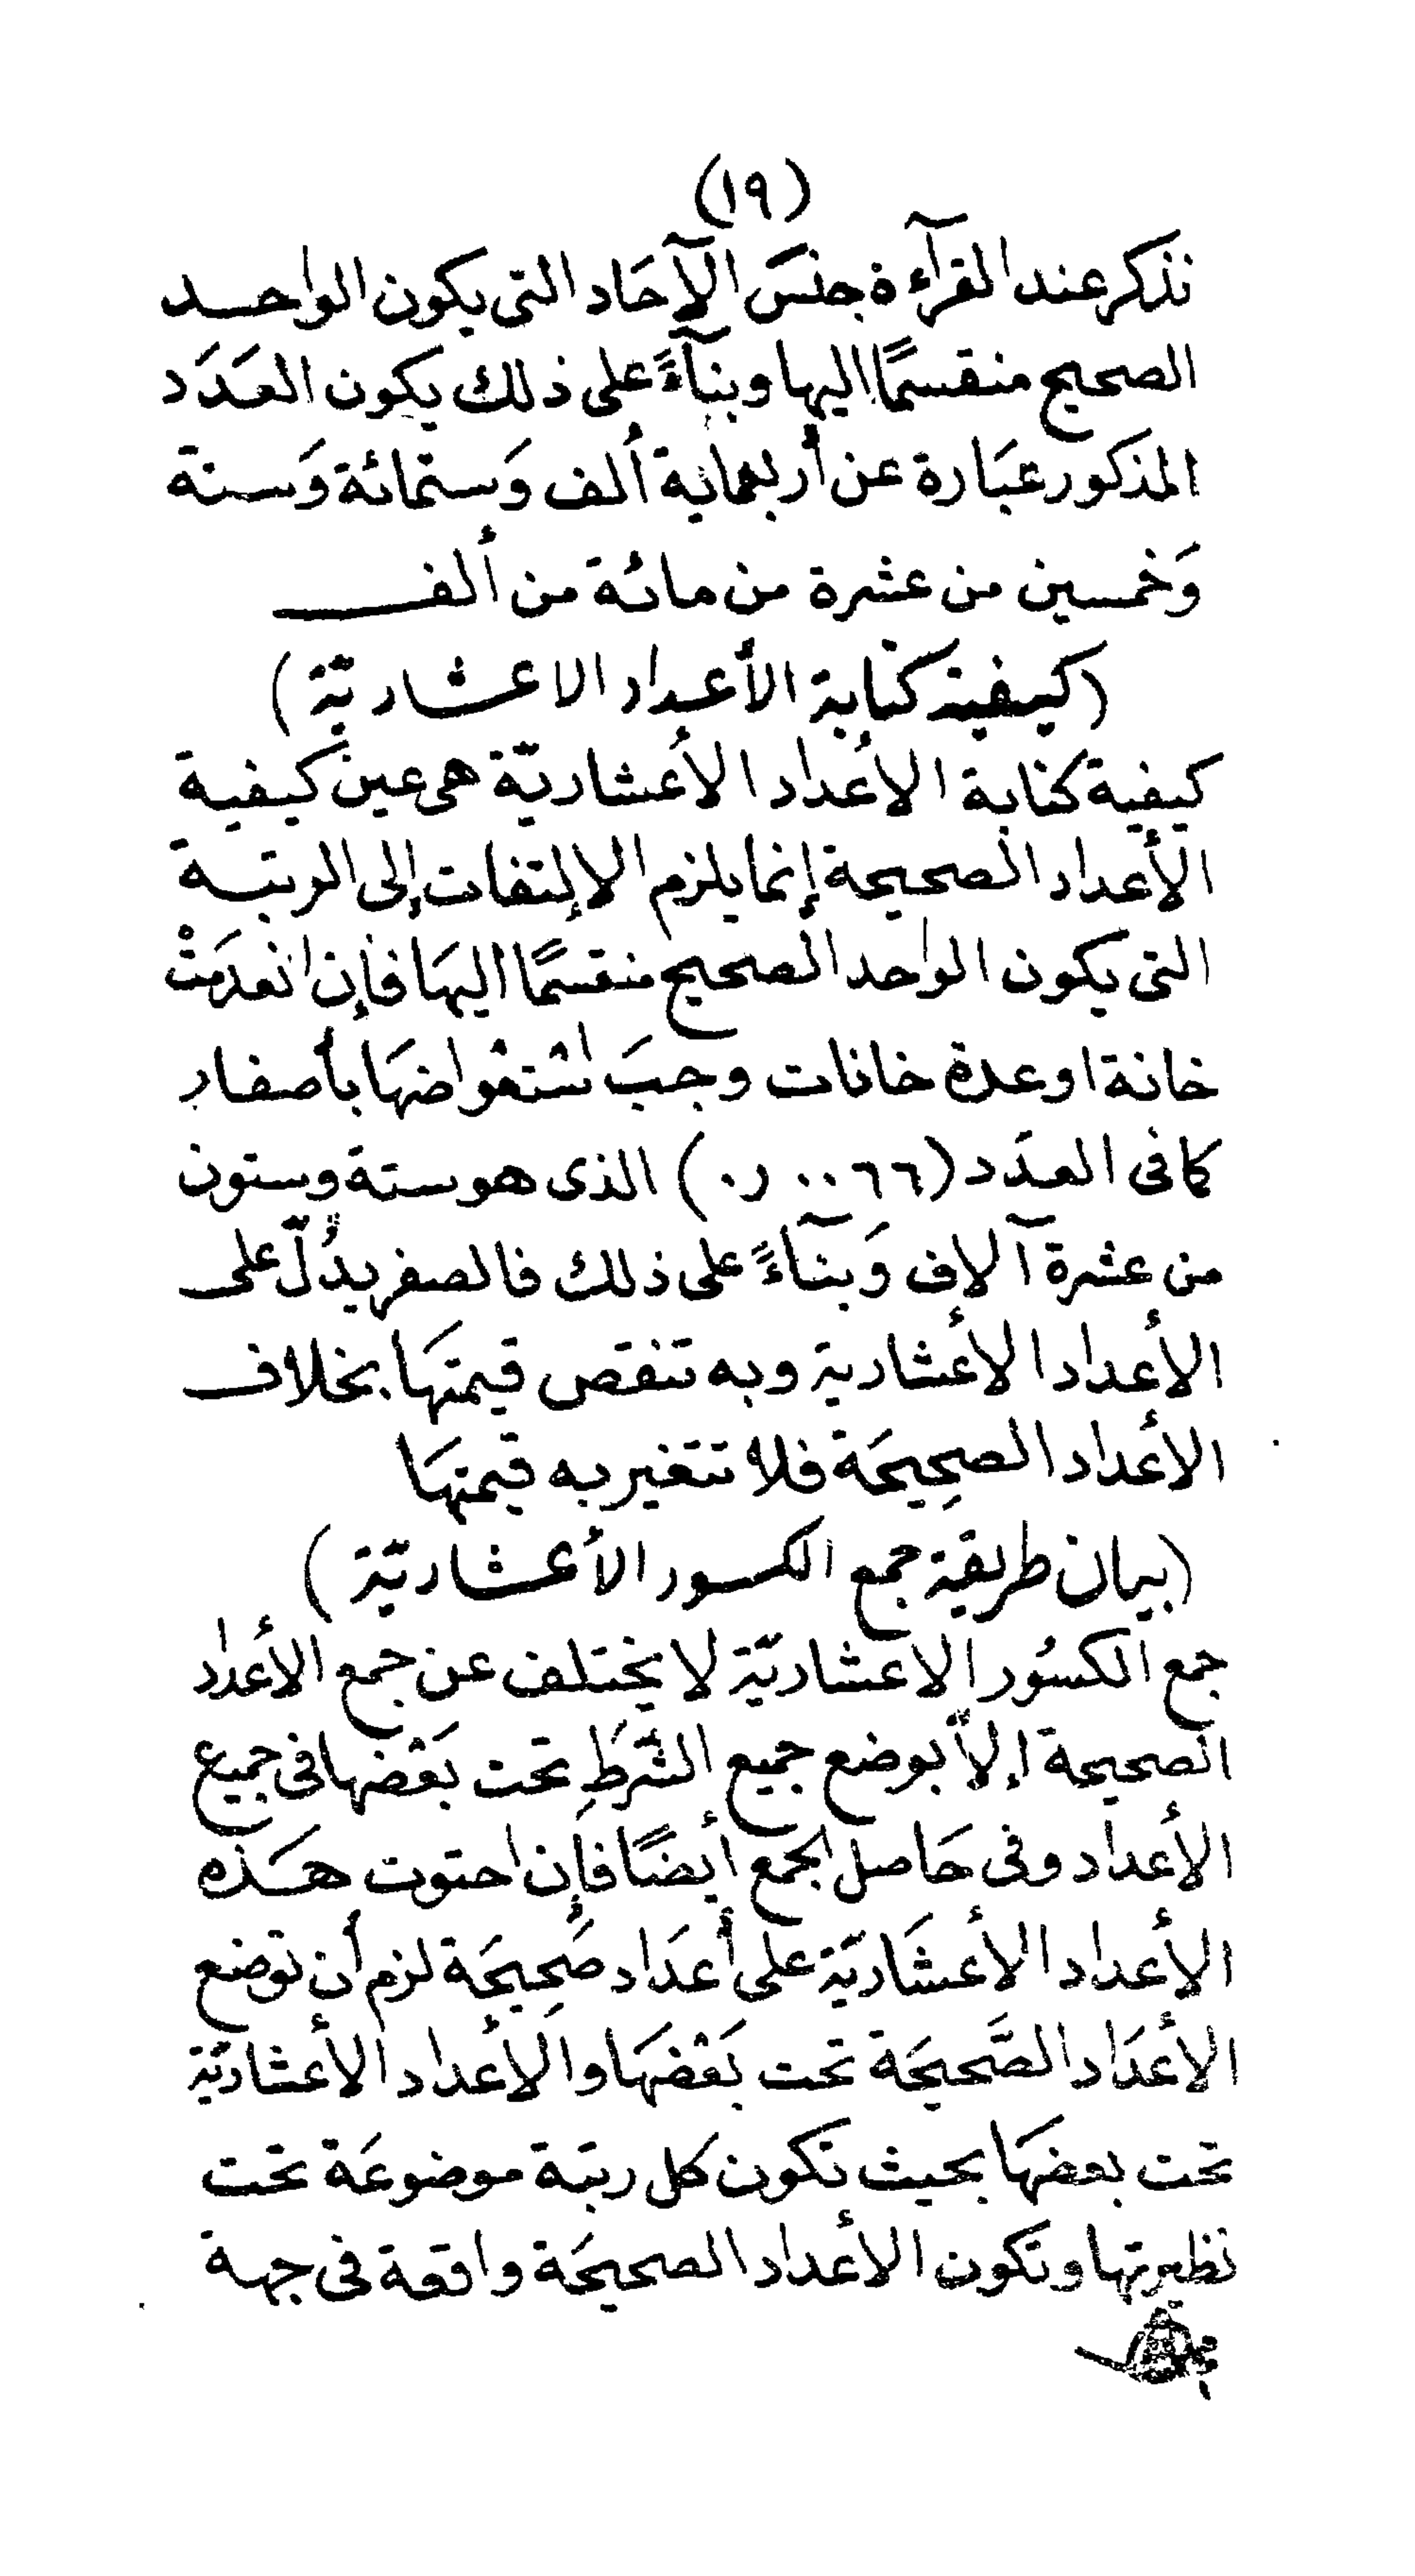 (١٩)
نذكر عند القرآءة جنسَ الآحَاد التى يكون الواحد
الصحيح منقسمًا اليها وبنآءً على ذلك يكون العَدَد
المذكور عبَارة عن أربعماية ألف وَستمائة وَستة
وَخمسين من عشرة من مائة من ألف
(كيفية كتابة الأعداد الاعشاريّة)
كيفية كتابة الأعداد الأعشاريّة هى عين كيفية
الأعداد الصحيحة إنما يلزم الإلتفات إلى الرتبة
التى يكون الواحد الصحيح منقسمًا اليهَا فإن انعدمَتْ
خانة اوعدة خانات وجبَ اسْتعْواضهَا بأصفار
كما فى العدَد (٠٫٠٠٦٦) الذى هو ستة وستون
من عشرة آلاف وَبنآءً على ذلك فالصفر يدُلّ على
الأعداد الأعشارية وبه تنقص قيمتهَا بخلاف
الأعداد الصحِيحَة فلا تتغير به قيمتهَا
(بيان طريقة جمع الكسور الأعشاريّة)
جمع الكسُور الاعشاريّة لا يختلف عن جمع الأعداد
الصحيحة إلاّ بوضع جميع الشّرَطِ تحت بَعْضها فى جميع
الأعداد وفى حَاصل الجمع أيضًا فإن احتوت هَذه
الأعداد الأعشَاريّة على أعدَاد صَحِيحَة لزم أن توضع
الأعدَاد الصَّحيحَة تحت بَعْضهَا والأعداد الأعشاريّة
تحت بعضهَا بحيث تكون كل رتبة موضوعَة تحت
نظيرتها وتكون الأعداد الصحيحَة واقعة فى جهة